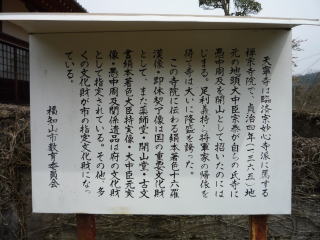 天寧寺は臨済宗妙心寺派に属する
禅宗寺院で、貞治四年(一三六五)地
元の地頭大中臣宗泰が自らの氏寺に
愚中周及を開山として招いたのには
じまる。足利義持ら将軍家の帰依を
得て寺は大いに隆盛を誇った。
この寺院に伝わる絹本著色十六羅
漢像・即休契了像は国の重要文化財
として、また薬師堂・開山堂・古文
書絹本著色大臣持実像・大中臣元実
像・愚中周及関係遺品は府の文化財
として指定されている。その他、多
くの文化財が市の指定文化財になっ
ている。
福知山市教育委員会